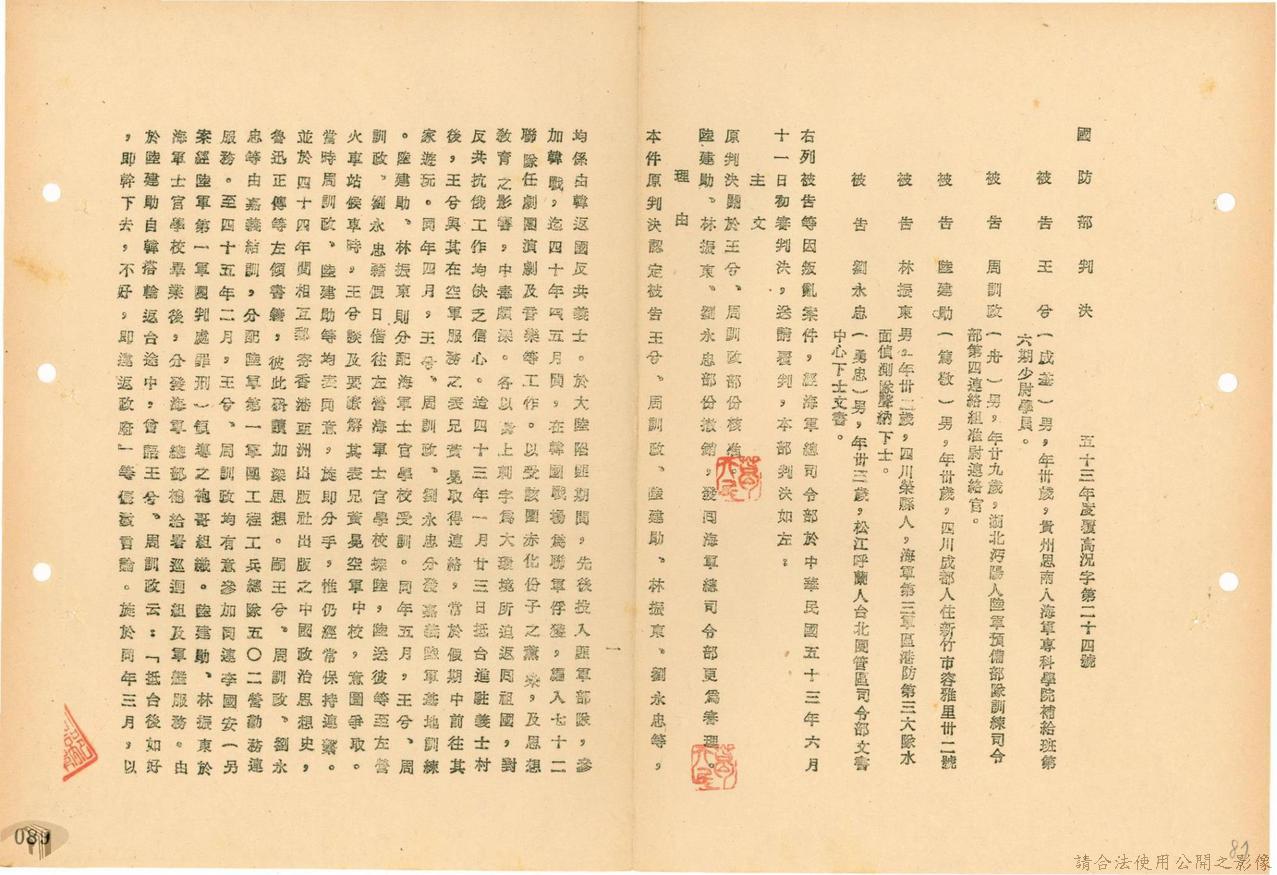 國防部判決
五十三年度覆高況字第二十四號
被告 王兮(成基)男,年卅歲,貴州思南人海軍專科學院補給班第
六期少尉學員。
被告 周訓政(舟)男,年廿九歲,湖北沔陽人陸軍預備部隊訓練司令
部第四連絡組准尉連絡官。
被告 陸建勛(篤敬)男,年卅歲,四川成都人住新竹市容雅里卅二號
被告 林振東 男,年卅二歲,四川榮縣人,海軍第三軍區港防第三大隊水
面偵測隊聲納下士。
被告 劉永忠(勇忠)男,年卅三歲,松江呼蘭人台北團管區司令部文書
中心下士文書。
右列被告等因叛亂案件,經海軍總司令部於中華民國五十三年六月
十一日初審判決,送請覆判,本部判決如左:
主文
原判決關於王兮、周訓政部份核准。
陸建勛、林振東、劉永忠部份撤銷,發回海軍總司令部更為審理。
理由
本件原判決認定被告王兮、周訓政、陸建勛、林振東、劉永忠等,
一
均係由韓返國反共義士。於大陸陷匪期間,先後投入匪軍部隊,參
加韓戰,迄四十年四五月間,在韓國戰場為聯軍俘獲,編入七十二
聯隊任劇團演劇及音樂等工作。以受該團赤化份子之薰染,及思想
教育之影響,中毒頗深。各以身上刺字為大環境所迫返回祖國,對
反共抗俄工作均缺乏信心。迨四十三年一月廿三日抵台進駐義士村
後,王兮與其在空軍服務之表兄黃晃取得連絡,常於假期中前往其
家遊玩。同年四月,王兮、周訓政、劉永忠分發嘉義陸軍基地訓練
。陸建勛、林振東則分配海軍士官學校受訓。同年五月,王兮、周
訓政、劉永忠藉假日偕往左營海軍士官學校探陸,陸送彼等至左營
火車站候車時,王兮談及要瞭解其表兄黃晃空軍中校,意圖爭取。
當時周訓政、陸建勛等均表同意,旋即分手,惟仍經常保持連繫。
並於四十四年間相互郵寄香港亞洲出版社出版之中國政治思想史,
魯迅正傳等左傾書籍,彼此研讀加深思想。嗣王兮、周訓政、劉永
忠等由嘉義結訓,分配陸軍第一軍團工程工兵總隊五〇二營勤務連
服務。至四十五年二月,王兮、周訓政均有意參加同連李國安(另
案經陸軍第一軍團判處罪刑)領導之袍哥組織。陸建勛、林振東於
海軍士官學校畢業後,分發海軍總部補給署巡迴組及軍艦服務。由
於陸建勛自韓搭輪返台途中,會語王兮、周訓政云:「抵台後如好
,即幹下去,不好,即遣返政府」等煽惑言論。旋於同年三月,以
089
81
請合法使用公開之影像